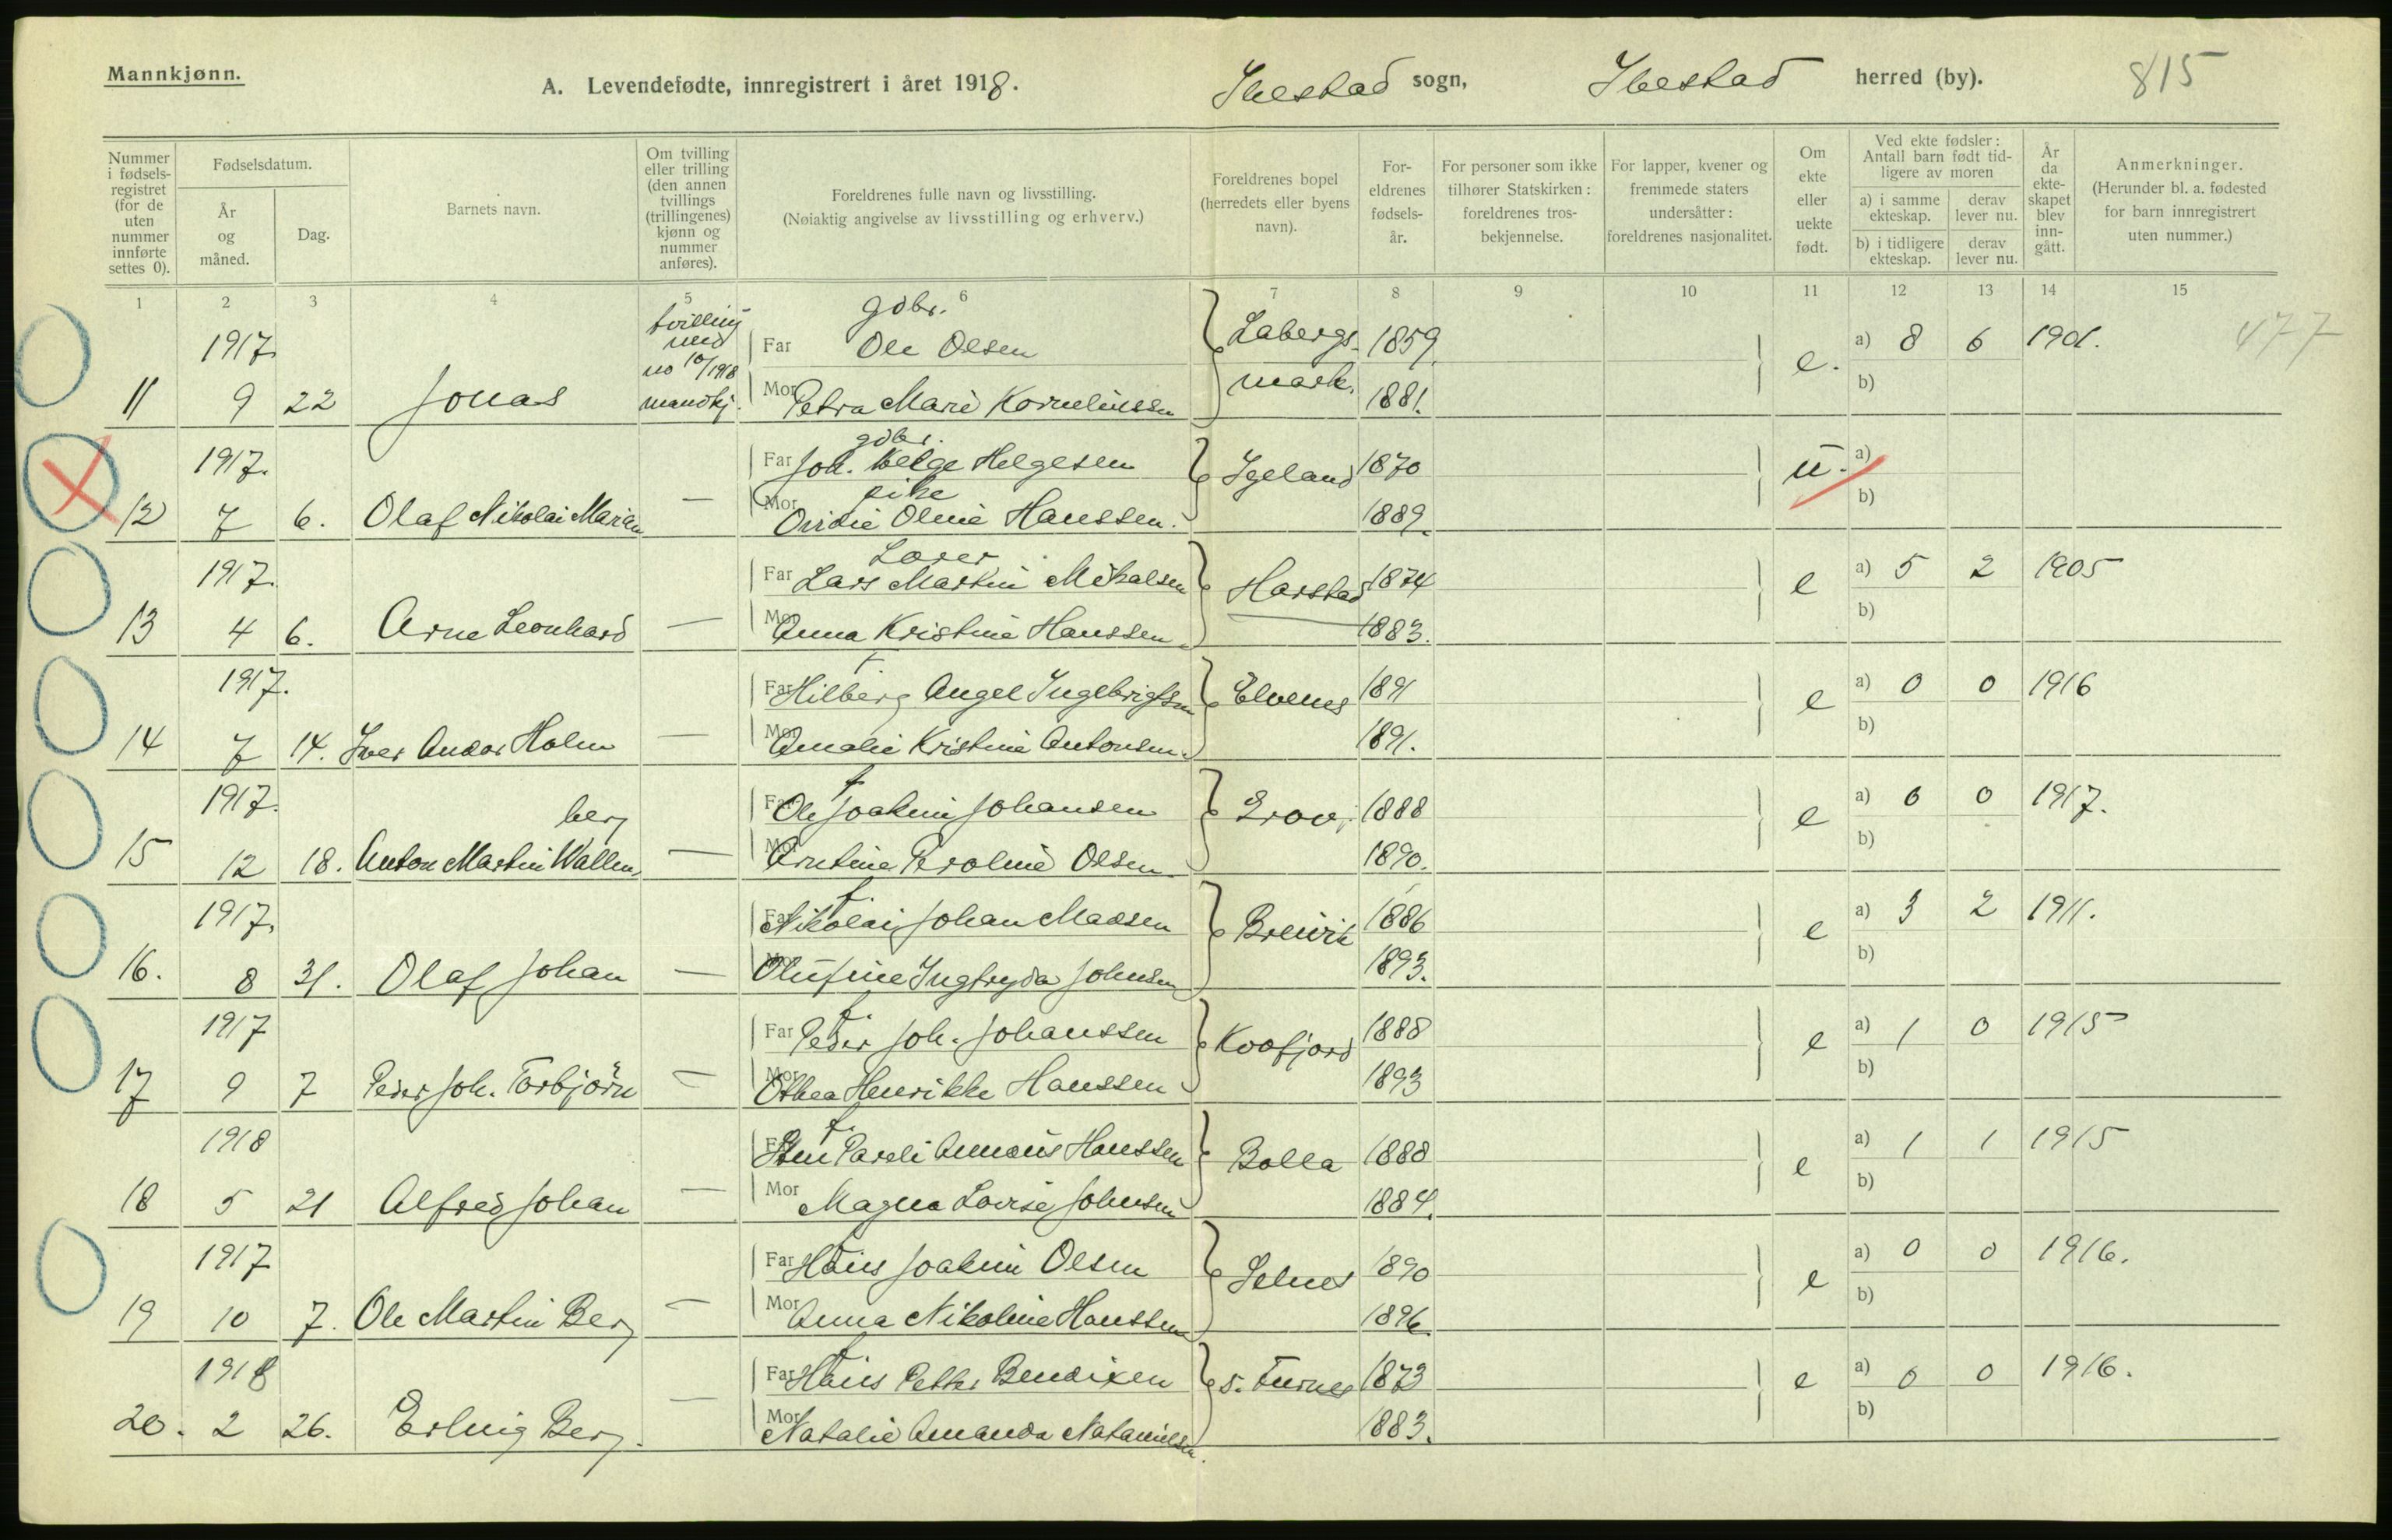 Mannkjønn.
A. Levendefødte, innregistrert i året 1918. Ibestad sogn, Ibestad herred (by). 815
Nummer i fødsels-registret (for de uten nummer innførte settes 0).
Fødselsdatum.
År og måned.
Dag.
Barnets navn.
Om tvilling eller trilling (den annen tvillings (trillingenes) kjønn og nummer anføres).
Foreldrenes fulle navn og livsstilling.
(Nøiaktig angivelse av livsstilling og erhverv.)
Foreldrenes bopel (herredets eller byens navn).
For-eldrenes fødsels-år.
For personer som ikke tilhører Statskirken: foreldrenes tros-bekjennelse.
For lapper, kvener og fremmede staters undersåtter: foreldrenes nasjonalitet.
Om ekte eller uekte født.
Ved ekte fødsler: Antall barn født tid-ligere av moren
a) i samme ekteskap.
derav lever nu.
b) i tidligere ekteskap.
derav lever nu.
År da ekte-skapet blev inn-gått.
Anmerkninger.
(Herunder bl. a. fødested for barn innregistrert uten nummer.)
1 2 3 4 5 6 7 8 9 10 11 12 13 14 15
tvilling med no 10/1918 mandkj.
gdbr.
1917 Far Ole Olsen Labergs- 1859. e. a) 8 6 1901. 477
11 9 22 Jonas Mor Petra Marie Korneliussen mark. 1881. b)
gdbr.
1917. Far Joh. Helge Helgesen Igeland 1870 u. a)
pike
12 7 6. Olaf Nikolai Marian — Mor Ovidie Oline Hanssen. 1889. b)
Lærer
1917. Far Lars Martin Mikalsen Harstad 1874 e a) 5 2 1905
13 4 6. Arne Leonhard — Mor Anna Kristine Hanssen 1883. b)
f.
1917. Far Hilberg Angel Ingebrigtsen Elvenes 1891 e a) 0 0 1916
14 7 14. Iver Andor Holm — Mor Amalie Kristine Antonsen. 1891. b)
f
1917. Far Ole Joakim Johansen Grov. 1888 e a) 0 0 1917.
berg
15 12 18. Anton Martin Wallen — Mor Arntine Peroline Olsen 1890. b)
f.
1917. Far Nikolai Johan Madsen Breivik 1886 e a) 3 2 1911.
16. 8 31. Olaf Johan — Mor Olufine Ingfryda Johnsen 1893. b)
f.
1917 Far Peder Joh. Johanssen Kvofjord 1888 e a) 1 0 1915
17 9 7 Peder Joh. Torbjörn — Mor Othea Henrikke Hanssen 1893 b)
f.
1918 Far Pareli Hanssen Bolla 1888 e a) 1 1 1915
18 5 21 Alfred Johan — Mor Magna Lovise Johnsen 1884. b)
f
1917 Far Hans Joakim Olsen Selnes 1890 e a) 0 0 1916.
19 10 7. Ole Martin Berg — Mor Anna Nikoline Hanssen 1896. b)
f
1918 Far Hans Petter Bendixen S. Furnes 1873 e a) 0 0 1916.
20. 2 26. Erling Berg. — Mor Natalie Amanda Natanielsen. 1883. b)